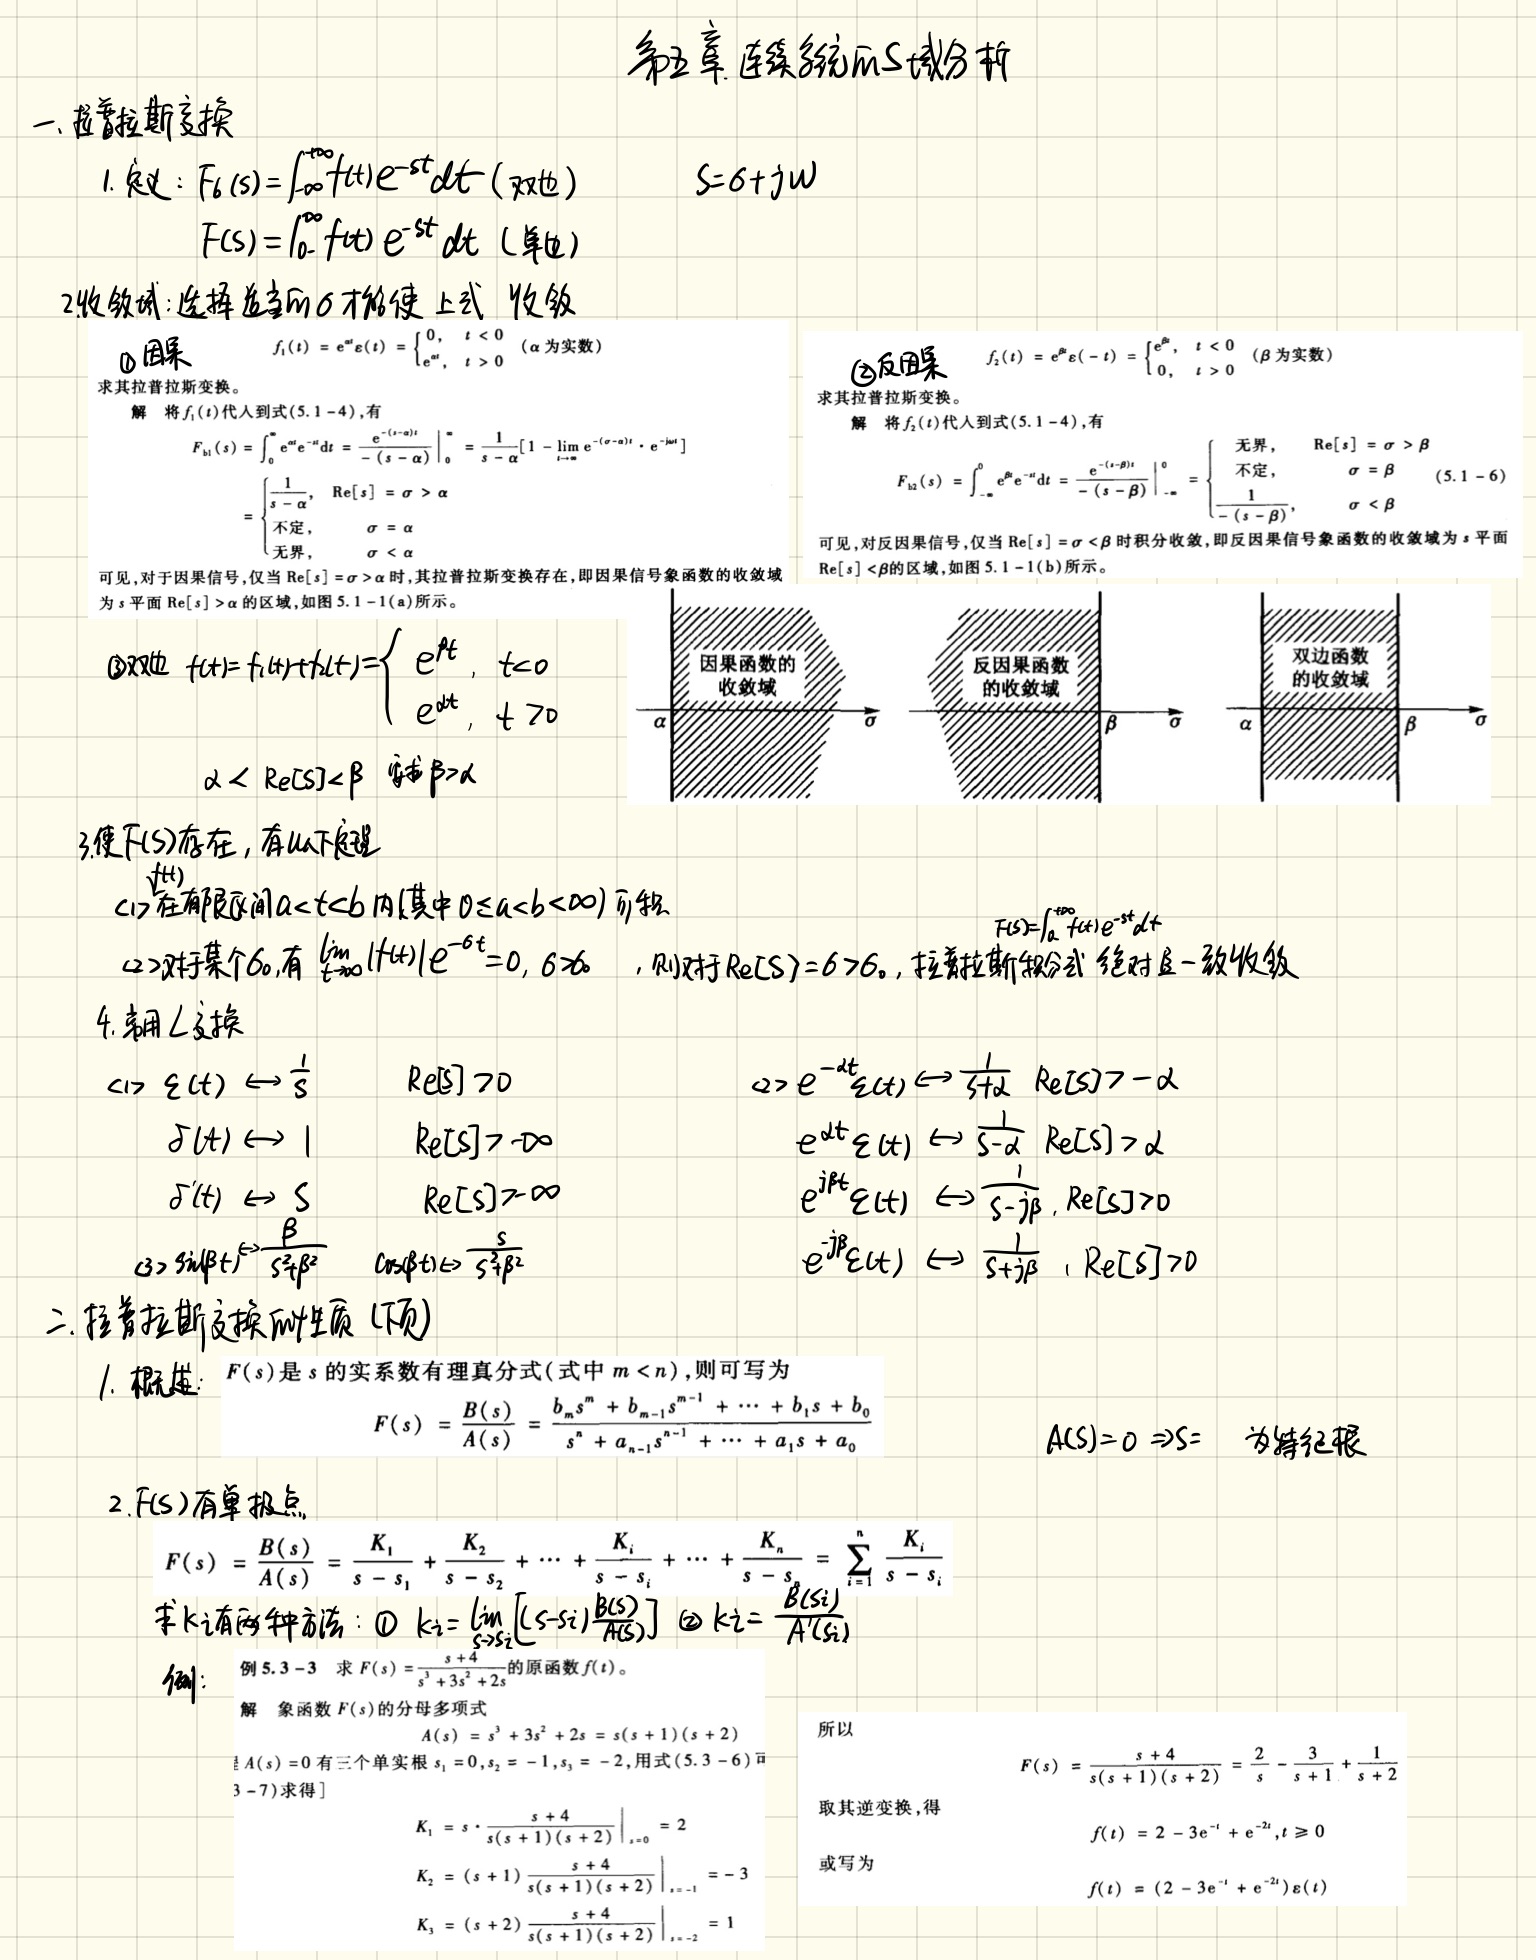 第五章 连续系统的S域分析
一、拉普拉斯变换
1. 定义: F_b(S)=∫_{-∞}^{+∞} f(t)e^{-st}dt (双边) S=σ+jω
F(S)=∫_{0-}^{+∞} f(t) e^{-st} dt (单边)
2.收敛域:选择适当的σ才能使 上式 收敛
①因果 f₁(t) = e^{αt}ε(t) = { 0, t < 0 (α 为实数)
e^{αt}, t > 0
求其拉普拉斯变换。
解 将 f₁(t)代入到式(5.1-4),有
F_{b1}(s) = ∫_0^∞ e^{αt}e^{-st}dt = e^{-(s-α)t}/-(s-α) |_0^∞ = 1/(s-α)[1 - lim_{t→∞} e^{-(σ-α)t} · e^{-jωt}]
= { 1/(s-α), Re[s] = σ > α
不定, σ = α
无界, σ < α
可见,对于因果信号,仅当 Re[s]=σ>α时,其拉普拉斯变换存在,即因果信号象函数的收敛域
为 s 平面 Re[s]>α 的区域,如图 5.1-1(a)所示。
②反因果 f₂(t) = e^{βt}ε(-t) = { e^{βt}, t < 0 (β 为实数)
0, t > 0
求其拉普拉斯变换。
解 将 f₂(t)代入到式(5.1-4),有
F_{b2}(s) = ∫_{-∞}^0 e^{βt}e^{-st}dt = e^{-(s-β)t}/-(s-β) |_{-∞}^0 = { 无界, Re[s] = σ > β
不定, σ = β (5.1-6)
1/-(s-β), σ < β
可见,对反因果信号,仅当 Re[s]=σ<β 时积分收敛,即反因果信号象函数的收敛域为 s 平面
Re[s]<β的区域,如图 5.1-1(b)所示。
③双边 f(t)=f₁(t)+f₂(t)={ e^{βt}, t<0
e^{αt}, t>0
α < Re[S]<β 要求β>α
因果函数的
收敛域
α σ
反因果函数
的收敛域
β σ
双边函数
的收敛域
α β σ
3.使F(S)存在,有以下定理
<1> f(t)在有限区间a<t<b 内(其中 0≤a<b<∞)可积
<2>对于某个σ₀,有 lim_{t→∞}|f(t)|e^{-σt}=0, σ>σ₀ ,则对于Re[S]=σ>σ₀, 拉普拉斯积分式 绝对且一致收敛
F(S)=∫_0^{+∞} f(t)e^{-st}dt
4.常用L变换
<1> ε(t) ↔ 1/S Re[S]>0
δ(t) ↔ 1 Re[S]>-∞
δ'(t) ↔ S Re[S]>-∞
<3> sin(βt)↔β/(S²+β²) cos(βt)↔S/(S²+β²)
<2> e^{-αt}ε(t)↔1/(S+α) Re[S]>-α
e^{αt}ε(t) ↔ 1/(S-α) Re[S]>α
e^{jβt}ε(t) ↔ 1/(S-jβ), Re[S]>0
e^{-jβ}ε(t) ↔ 1/(S+jβ), Re[S]>0
二.拉普拉斯变换的性质 (下页)
1. 概述: F(s)是 s 的实系数有理真分式(式中 m<n),则可写为
F(s) = B(s)/A(s) = (b_m s^m + b_{m-1}s^{m-1} + ⋯ + b₁s + b₀)/(s^n + a_{n-1}s^{n-1} + ⋯ + a₁s + a₀)
A(S)=0 ⇒S= 为特征根
2.F(S)有单极点
F(s) = B(s)/A(s) = K₁/(s-s₁) + K₂/(s-s₂) + ⋯ + K_i/(s-s_i) + ⋯ + K_n/(s-s_n) = ∑_{i=1}^n K_i/(s-s_i)
求Ki有两种方法: ① Ki=lim_{S→Si}[(S-Si)B(S)/A(S)] ② Ki=B(Si)/A'(Si)
例:
例 5.3-3 求 F(s) = (s+4)/(s³+3s²+2s)的原函数 f(t)。
解 象函数 F(s)的分母多项式
A(s) = s³ + 3s² + 2s = s(s+1)(s+2)
A(s)=0 有三个单实根 s₁=0,s₂=-1,s₃=-2,用式(5.3-6)可
3-7)求得]
K₁ = s · (s+4)/(s(s+1)(s+2)) |_{s=0} = 2
K₂ = (s+1) (s+4)/(s(s+1)(s+2)) |_{s=-1} = -3
K₃ = (s+2) (s+4)/(s(s+1)(s+2)) |_{s=-2} = 1
所以
F(s) = (s+4)/(s(s+1)(s+2)) = 2/s - 3/(s+1) + 1/(s+2)
取其逆变换,得
f(t) = 2 - 3e^{-t} + e^{-2t}, t ≥ 0
或写为
f(t) = (2 - 3e^{-t} + e^{-2t})ε(t)